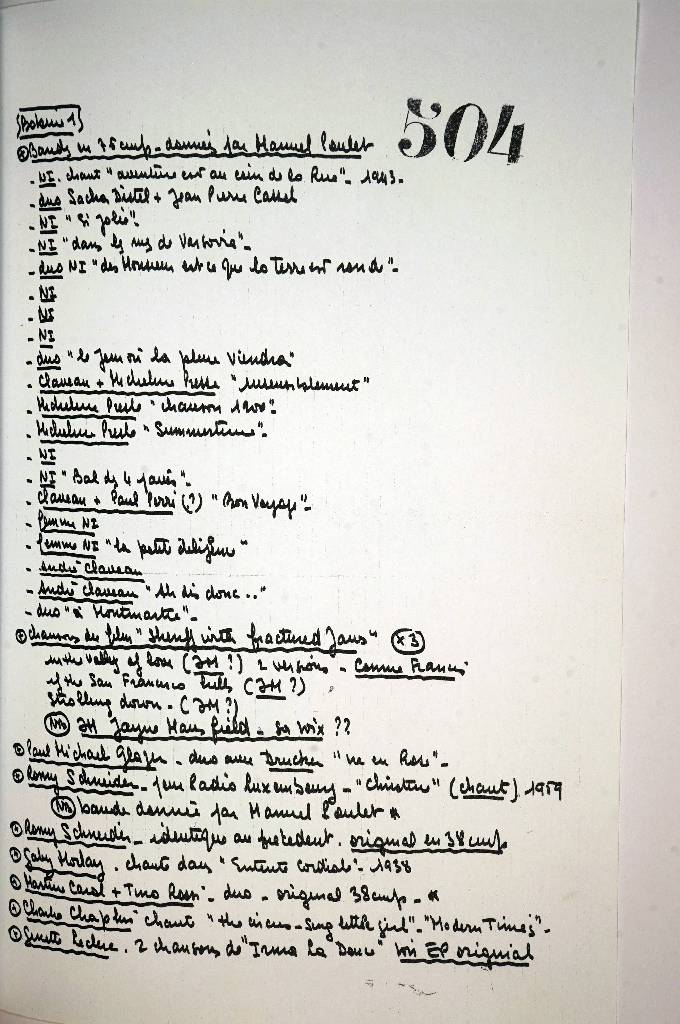 504
① Bande en 76 cmp - donnés par Manuel Poulet
- NI. chant "aventure est au coin de la Rue" - 1943.
- duo Sacha Distel + Jean Pierre Cassel
- NI "Si Jolie".
- NI "dans les rues de Varsovie" -
- duo NI "des Monsieur est ce que la Terre est ronde" -
- NI
- NI
- NI
- duo "le Jour où la pluie Viendra"
- Claveau + Micheline Presle
- Micheline Presle "chanson 1900".
- Micheline Presle "Summertime".
- NI
- NI "Bal des 4 pavés".
- Claveau + Paul Perri (?) "Bon Voyage" -
- femme NI
- femme NI "la petite diligence"
- André Claveau
- André Claveau "Ah dis donc .."
- duo "à Montmartre" -
① chansons du film "Sheriff with fractured Jaws" (x3)
in the Valley of Love (JM ?) 2 versions - Connie Francis
if the San Francisco hills (JM ?)
Strolling down - (JM ?)
JM Jayne Mansfield - sa voix ??
① Paul Michael Glaser - duo avec Drucker "vie en Rose" -
① Romy Schneider - pour Radio Luxembourg - "Christine" (chant) 1959
bande donnée par Manuel Poulet *
① Romy Schneider - identique au précédent. original en 38 cmp
① Gaby Morlay. chante dans "Entente Cordiale" - 1938
① Martine Carol + Tino Rossi - duo - original 38 cmp - *
① Charlie Chaplin chante "the circus - sing little girl" - "Modern Times" -
① Ginette Leclerc. 2 chansons de "Irma La Douce" voir EP original